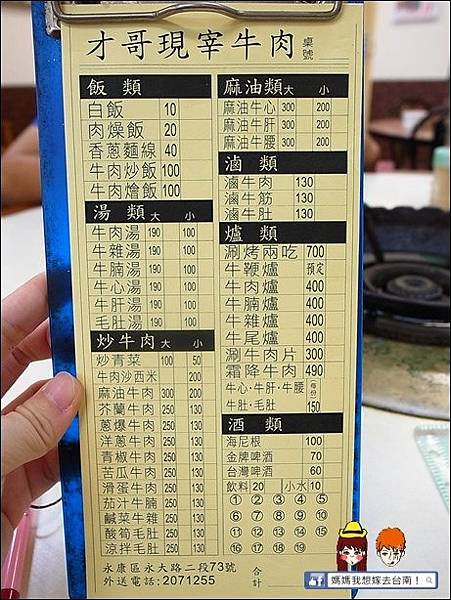 才哥現宰牛肉 桌號
飯類
白飯 10
肉燥飯 20
香蔥麵線 40
牛肉炒飯 100
牛肉燴飯 100
湯類 大 小
牛肉湯 190 100
牛雜湯 190 100
牛腩湯 190 100
牛心湯 190 100
牛肝湯 190 100
毛肚湯 190 100
炒牛肉 大 小
炒青菜 100 50
牛肉沙西米 200
麻油牛肉 300 200
芥蘭牛肉 250 130
蔥爆牛肉 250 130
洋蔥牛肉 250 130
青椒牛肉 250 130
苦瓜牛肉 250 130
滑蛋牛肉 250 130
茄汁牛腩 250 130
鹹菜牛雜 250 130
酸筍毛肚 250 130
涼拌毛肚 250 130
麻油類 大 小
麻油牛心 300 200
麻油牛肝 300 200
麻油牛腰 300 200
滷類
滷牛肉 130
滷牛筋 130
滷牛肚 130
爐類
涮烤兩吃 700
牛鞭爐 預定
牛肉爐 400
牛腩爐 400
牛雜爐 400
牛尾爐 400
涮牛肉片 300
霜降牛肉 490
牛心‧牛肝‧牛腰 (每份)
牛肚‧毛肚 150
酒類
海尼根 100
金牌啤酒 70
台灣啤酒 60
飲料 20 小水 10
① ② ③ ④ ⑤
⑥ ⑦ ⑧ ⑨ ⑩
⑪ ⑫ ⑬ ⑭ ⑮
⑯ ⑰ ⑱ ⑲
永康區永大路二段73號
外送電話:2071255
合計
媽媽我想嫁去台南!